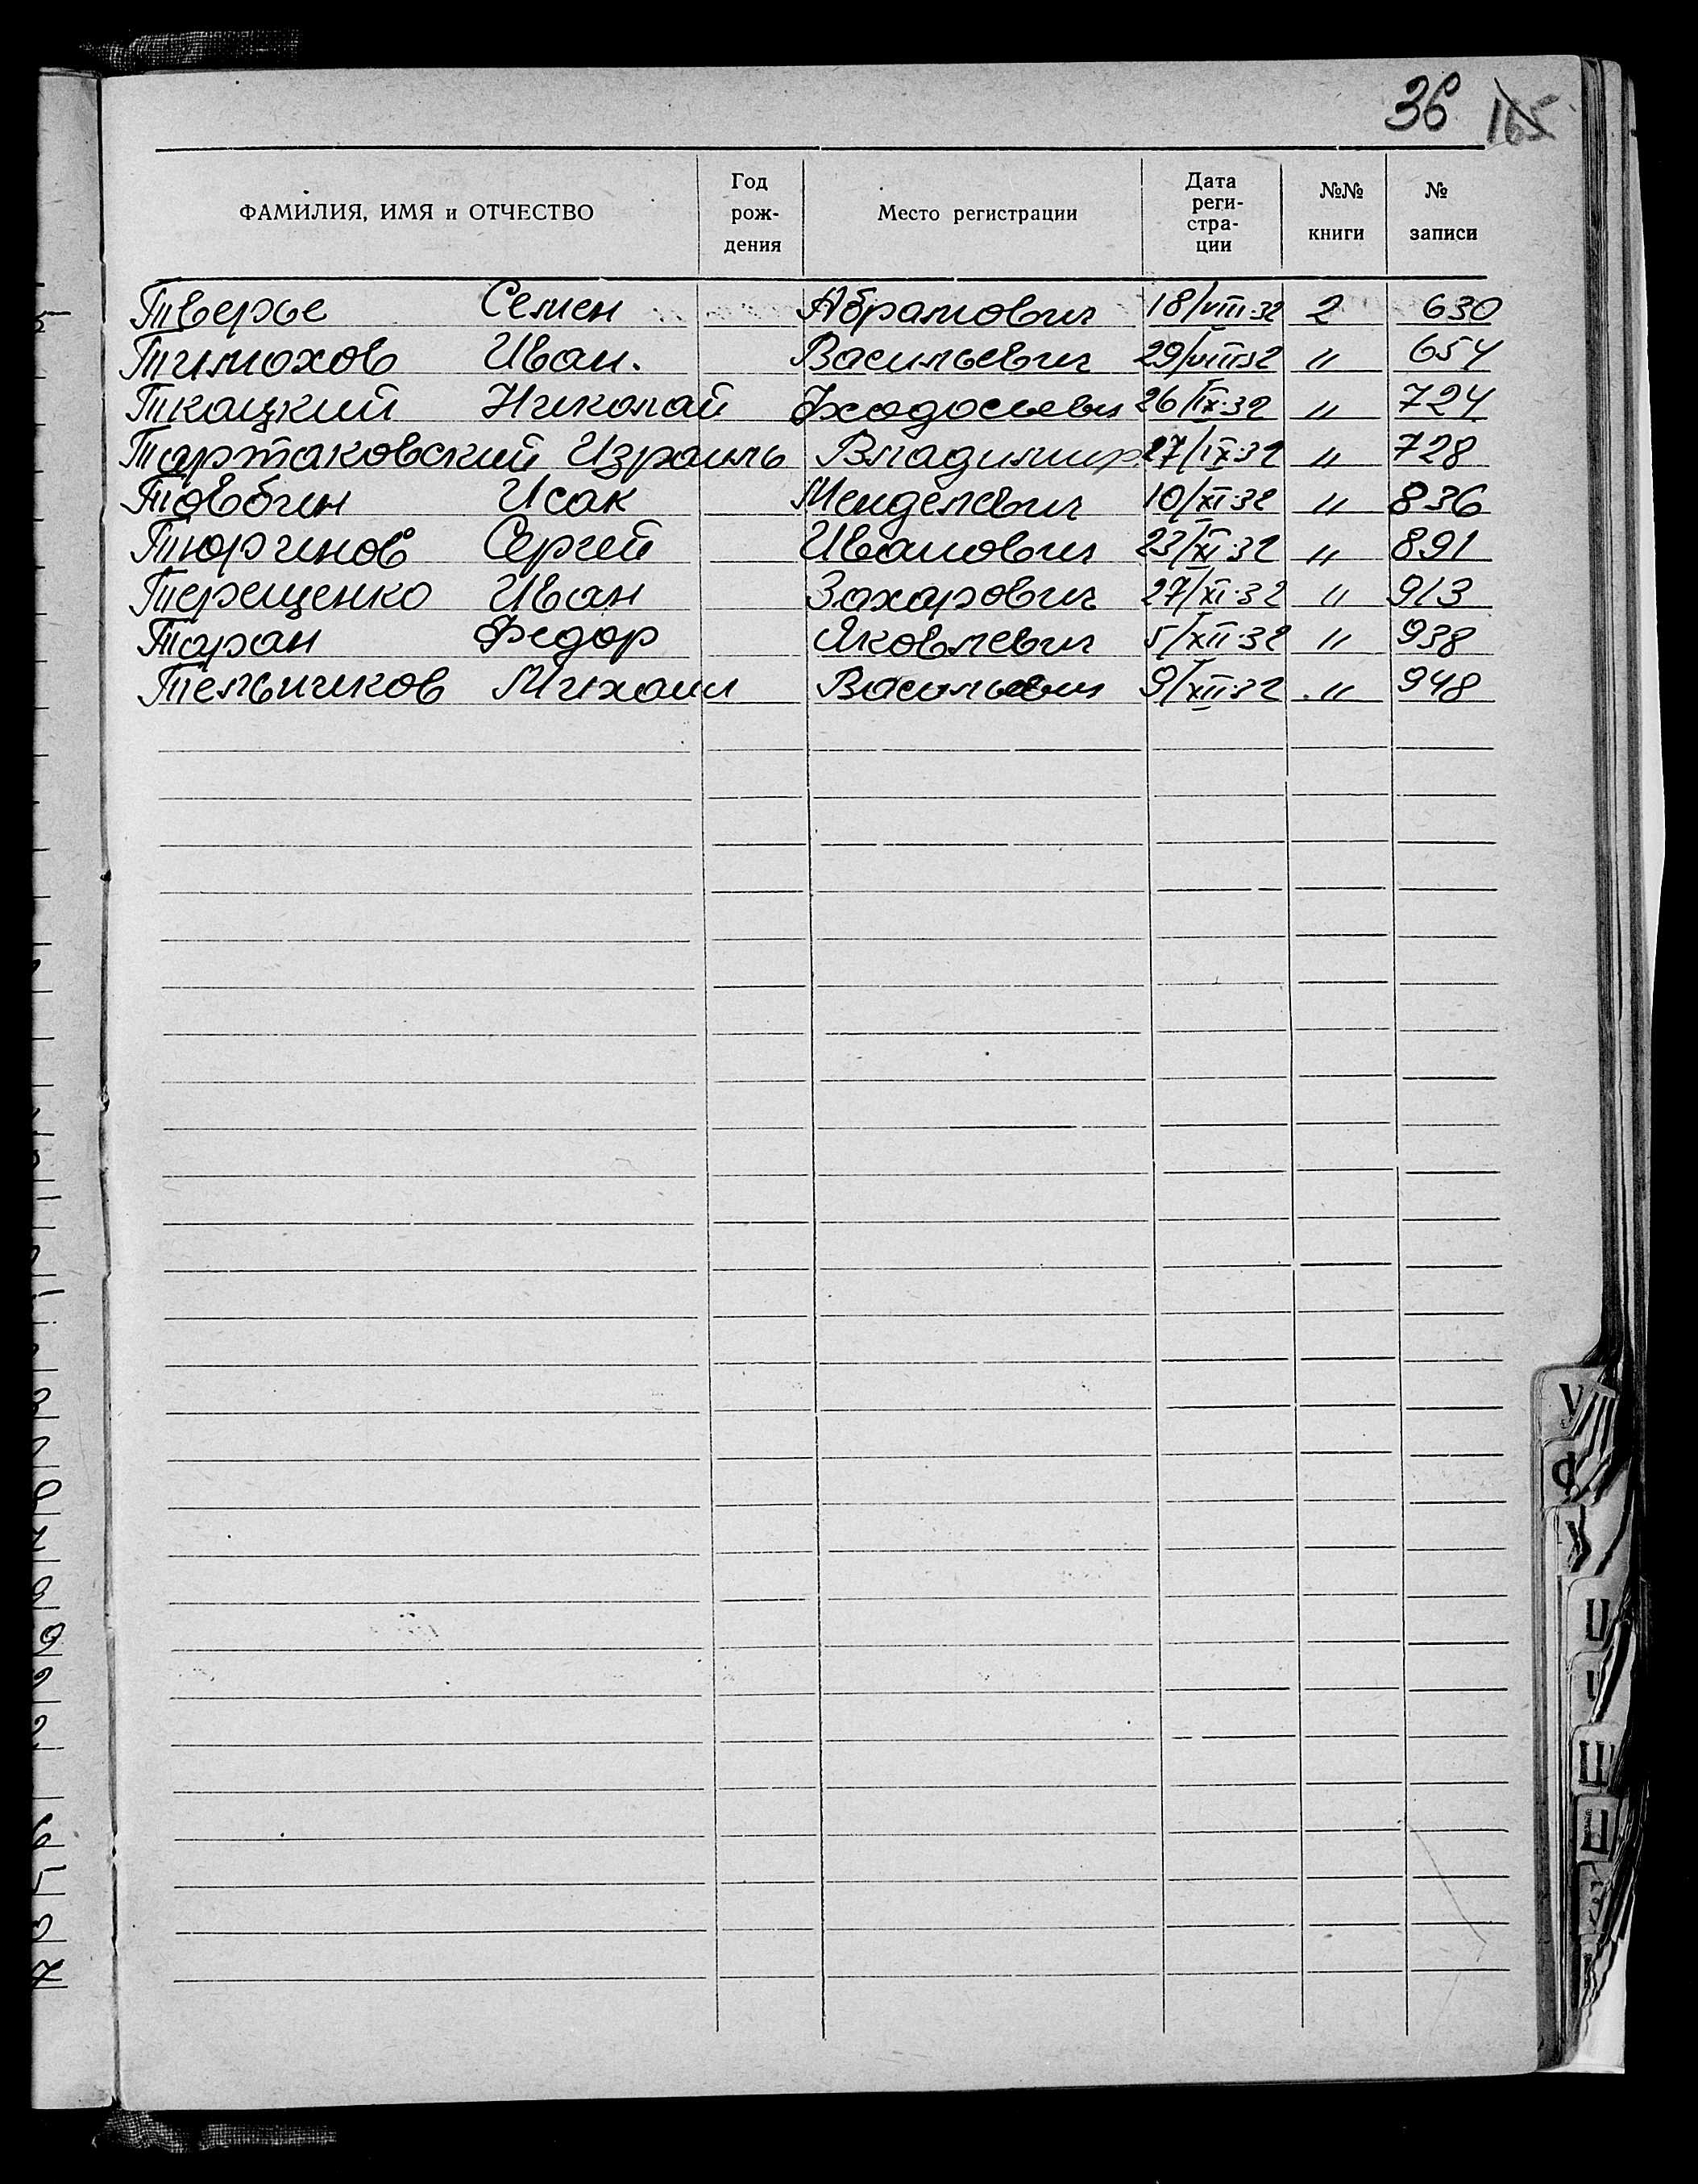 36 165
ФАМИЛИЯ, ИМЯ и ОТЧЕСТВО Год рож- дения Место регистрации Дата реги- стра- ции №№ книги № записи
Тверье Семен Абрамович 18/VIII-32 2 630
Тимохов Иван. Васильевич 29/VIII32 〃 654
Ткацкий Николай Феодосьевич 26/IX-32 〃 724
Тартаковский Израиль Владимир 27/IX-32 〃 728
Товбин Исак Менделевич 10/XI-32 〃 836
Тюргинов Сергей Иванович 23/XI-32 〃 891
Терещенко Иван Захарович 27/XI-32 〃 913
Таран Федор Яковлевич 5/XII-32 〃 938
Тельчиков Михаил Васильевич 9/XII-32 〃 948